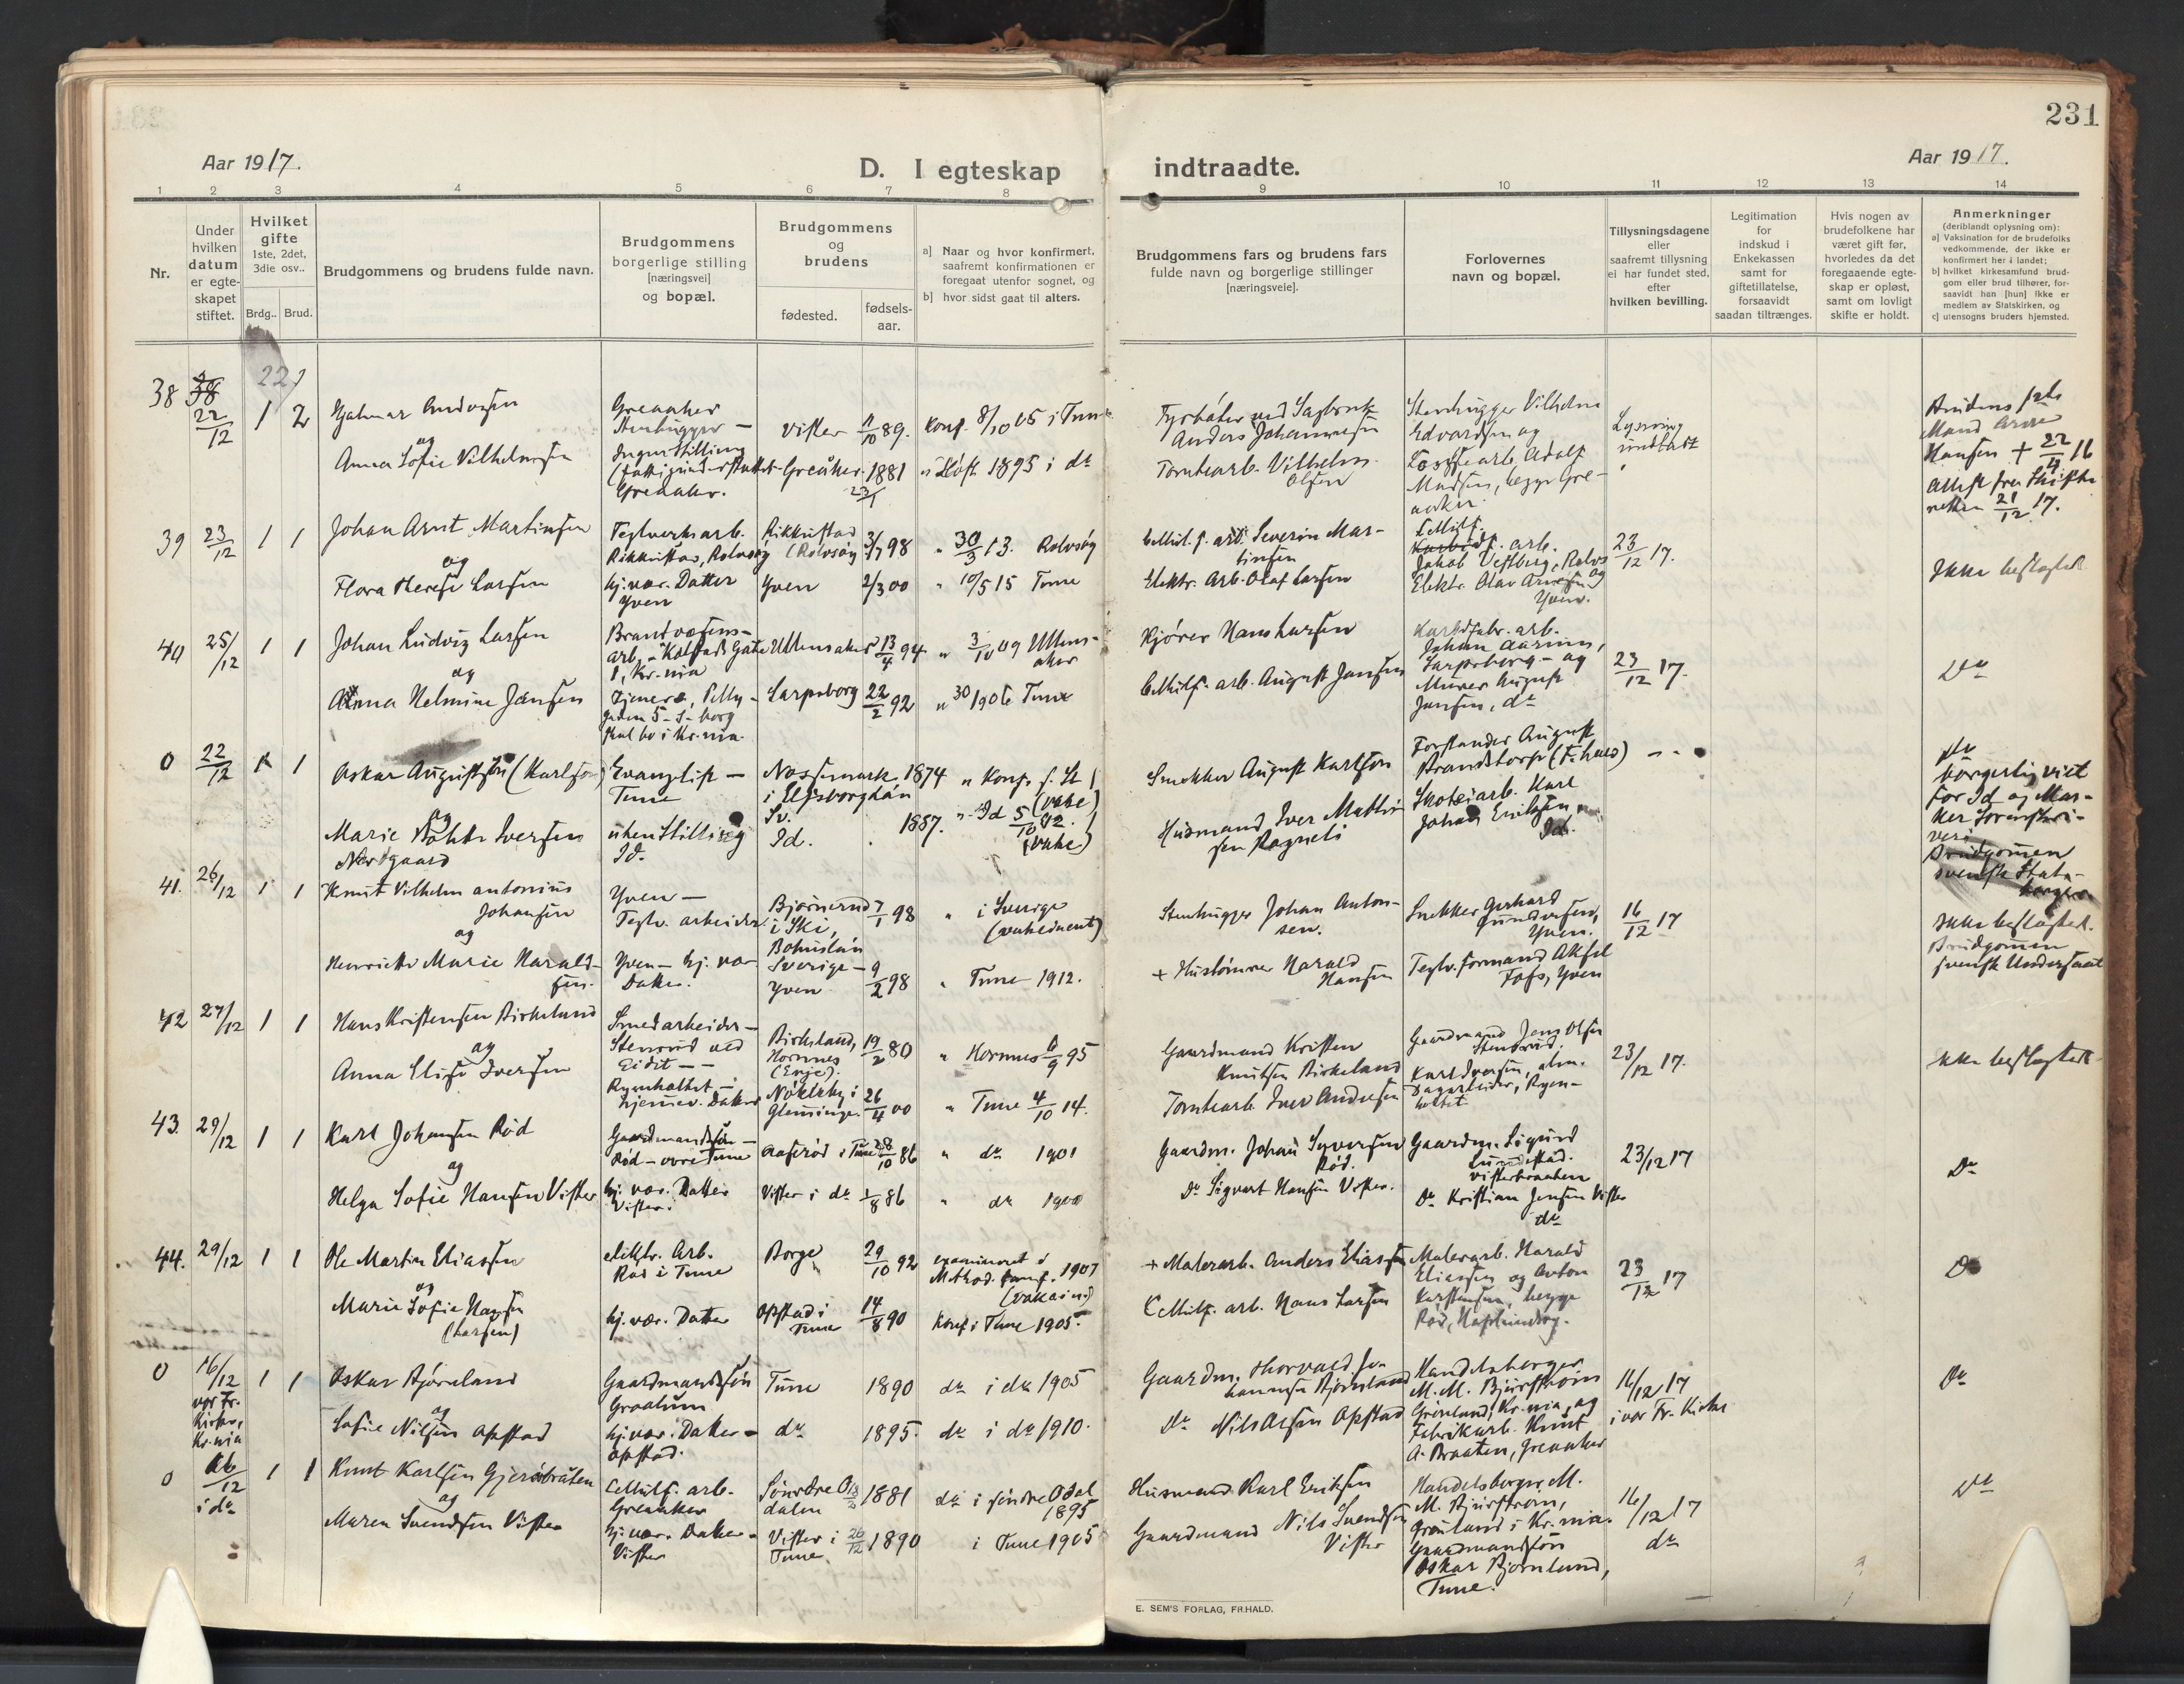 231
Aar 1917.
D. I egteskap indtraadte.
Aar 1917.
1 2 3 4 5 6 7 8 9 10 11 12 13 14
Nr.
Under hvilken datum er egteskapet stiftet.
Hvilket gifte
1ste, 2det, 3die osv..
Brdg.. Brud.
Brudgommens og brudens fulde navn.
Brudgommens borgerlige stilling [næringsvei] og bopæl.
Brudgommens og brudens
fødested.
fødselsaar.
a] Naar og hvor konfirmert, saafremt konfirmationen er foregaat utenfor sognet, og
b] hvor sidst gaat til alters.
Brudgommens fars og brudens fars fulde navn og borgerlige stillinger [næringsveie].
Forlovernes navn og bopæl.
Tillysningsdagene eller saafremt tillysning ei har fundet sted, efter hvilken bevilling.
Legitimation for indskud i Enkekassen samt for giftetillatelse, forsaavidt saadan tiltrænges.
Hvis nogen av brudefolkene har været gift før, hvorledes da det foregaaende egteskap er opløst, samt om lovligt skifte er holdt.
Anmerkninger
(deriblandt oplysning om):
a] Vaksination for de brudefolks vedkommende, der ikke er konfirmert her i landet;
b] hvilket kirkesamfund brudgom eller brud tilhører, forsaavidt han [hun] ikke er medlem av Statskirken, og
c] utensogns bruders hjemsted.
38 22/12 1 2 Hjalmar Andersen
Greaaker
Vister 11/10 89. Konf. 8/10 05 i Tune
Anders Johannesen
Stenhugger Vilhelm Edvardsen og
Lysning undladt
og
Anna Sofie Vilhelmsen
Ingen Stilling
Greaaker.
Greåker. 1881
1895 i do
Tomtearb. Vilhelm Olsen
Adolf Madsen, begge Greaaker
Brudens 1ste Mand Arne Hansen + 22/4 16
Attest fra Skifteretten 21/12 17.
39 23/12 1 1 Johan Arnt Martinsen
Teglverksarb. Rikkustad, Rolvsøy
Rikkustad (Rolvsøy 3/7 98
" 30/3 13. Rolvsøy
Cellul. f. arb. Severin Martinsen
arb. Jakob Vestberg, Rolvs og
23/12 17.
og
Flora Therese Larsen
hj.vær. Datter Yven
Yven 2/3 00 " 10/5 15 Tune
Elektr. Arb. Olaf Larsen
Elektr. Olav Arnesen Yven.
Ikke beslægtet
40 25/12 1 1 Johan Ludvig Larsen
Brandvæsens-arb. - Kolstads Gate 1, Kr.nia
Ullensaker 13/4 94 " 3/10 09 Ullensaker
Kjører Hans Larsen
Karbidfabr. arb. Johan Aarnes, Sarpsborg - og
23/12 17.
Do
og
Anna Helmine Jansen
Sarpsborg 22/2 92 " 30/9 06 Tune
Cellulf. arb. August Jansen
Murer August Jansen, do
skal bo i Kr.nia.
0 22/12 1 1 Oskar Augustsson (Karlson)
Evangelist - Tune
Nössemark i Elfsborg län Sv.
1874
Snekker August Karlson
Forstander August Brandstorp (F.hald)
og
Marie Iversen Norgaard
uten Stilling Id.
Id. 1887. " Id 5/10 02. (vake)
Husmand Iver Mathisen Ragneli
Karl Johan Eriksen Id.
borgerlig viet for Id og Marker Sorenskriveri
Brudgommen svensk Statsborger
41. 26/12 1 1 Knut Vilhelm Antonius Johansen
Yven - Teglv. arbeider.
7/1 98 " i Sverige
Stenhugger Johan Antonsen.
Snekker Gerhard Gundersen, Yven.
16/12 17
Bohuslän Sverige -
og
Henriette Marie Haraldsen.
Yven - hj. vær Datter.
Yven 9/2 98 " Tune 1912.
+ Hustømrer Harald Hansen
Teglv. formand Aksel Foss, Yven
Ikke beslægtet.
Brudgommen svensk Undersaat
42 27/12 1 1 Hans Kristensen Birkeland
Smedarbeider -
Birkeland, Hornnes (Evje). 19/2 80
" Hornnes 6/9 95
Gaardmand Kristen Knutsen Birkeland
Gaardmand Jens Olsen Stensrud.
23/12 17.
Ikke beslægtet
og
Anna Elise Iversen
hjemmev. Datter
Nøkleby i Glemminge 26/4 00
" Tune 4/10 14.
Tomtearb. Iver Andersen
Karl Iversen, alm. Dagarbeider, Ryenholtet
43. 29/12 1 1 Karl Johansen Rød
Gaardmandssøn - Rød - øvre Tune
Aaserød i Tune 28/10 86 " do 1901
Gaardm. Johan Syversen Rød.
Gaardm. Sigurd Lundestad. Visterbraaten
23/12 17
Do
og
Helga Sofie Hansen Vister
hj. vær. Datter Vister.
Vister i do 1/8 86 " do 1900
Do Sigvart Hansen Vister.
Do Kristian Jensen Vister do
44. 29/12 1 1 Ole Martin Eliassen
elektr. Arb. Rød i Tune
Borge 29/10 92 examineret i Method. samf. 1907
+ Malerarb. Anders Eliassen
Malerarb. Harald Eliassen og Anton
23/12 17
Do
og
Marie Sofie Hansen (Larsen)
hj. vær. Datter
Opstad i Tune 14/8 90 Konf. i Tune 1905.
Cellulf. arb. Hans Larsen
Karstensen, begge Rød, Hafslundsøy.
0 16/12 vor Fr. Kirke, Kr.nia 1 1 Oskar Bjørnland
Gaardmandssøn Graalum
Tune 1890 do i do 1905
Gaardm. Thorvald Johannesen Bjørnland
Handelsborger M. M. Bjurstrøm Grønland, Kr.nia, og
16/12 17 i vor Fr. Kirke
Do
og
Sofie Nilsen Opstad
hj.vær. Datter - Opstad.
do 1895. do i do 1910.
Do Nils Olsen Opstad
Fabrikarb. Knut A. Braaten, Greaaker
0 16/12 i do 1 1 Knut Karlsen Gjersøbråten
Cellulf. arb. Greaaker
1881 do i søndre Odal 1895
Husmand Karl Eriksen
Handelsborger M. M. Bjurstrøm, Grønland i Kr.nia.
16/12 17 do
Do
og
Maren Svendsen Vister
hj.vær. Datter - Vister
Vister i Tune. 26/12 1890 i Tune 1905
Gaardmand Nils Svendsen Vister
Gaardmandssøn Oskar Bjørnland, Tune.
E. SEM'S FORLAG, FR.HALD.